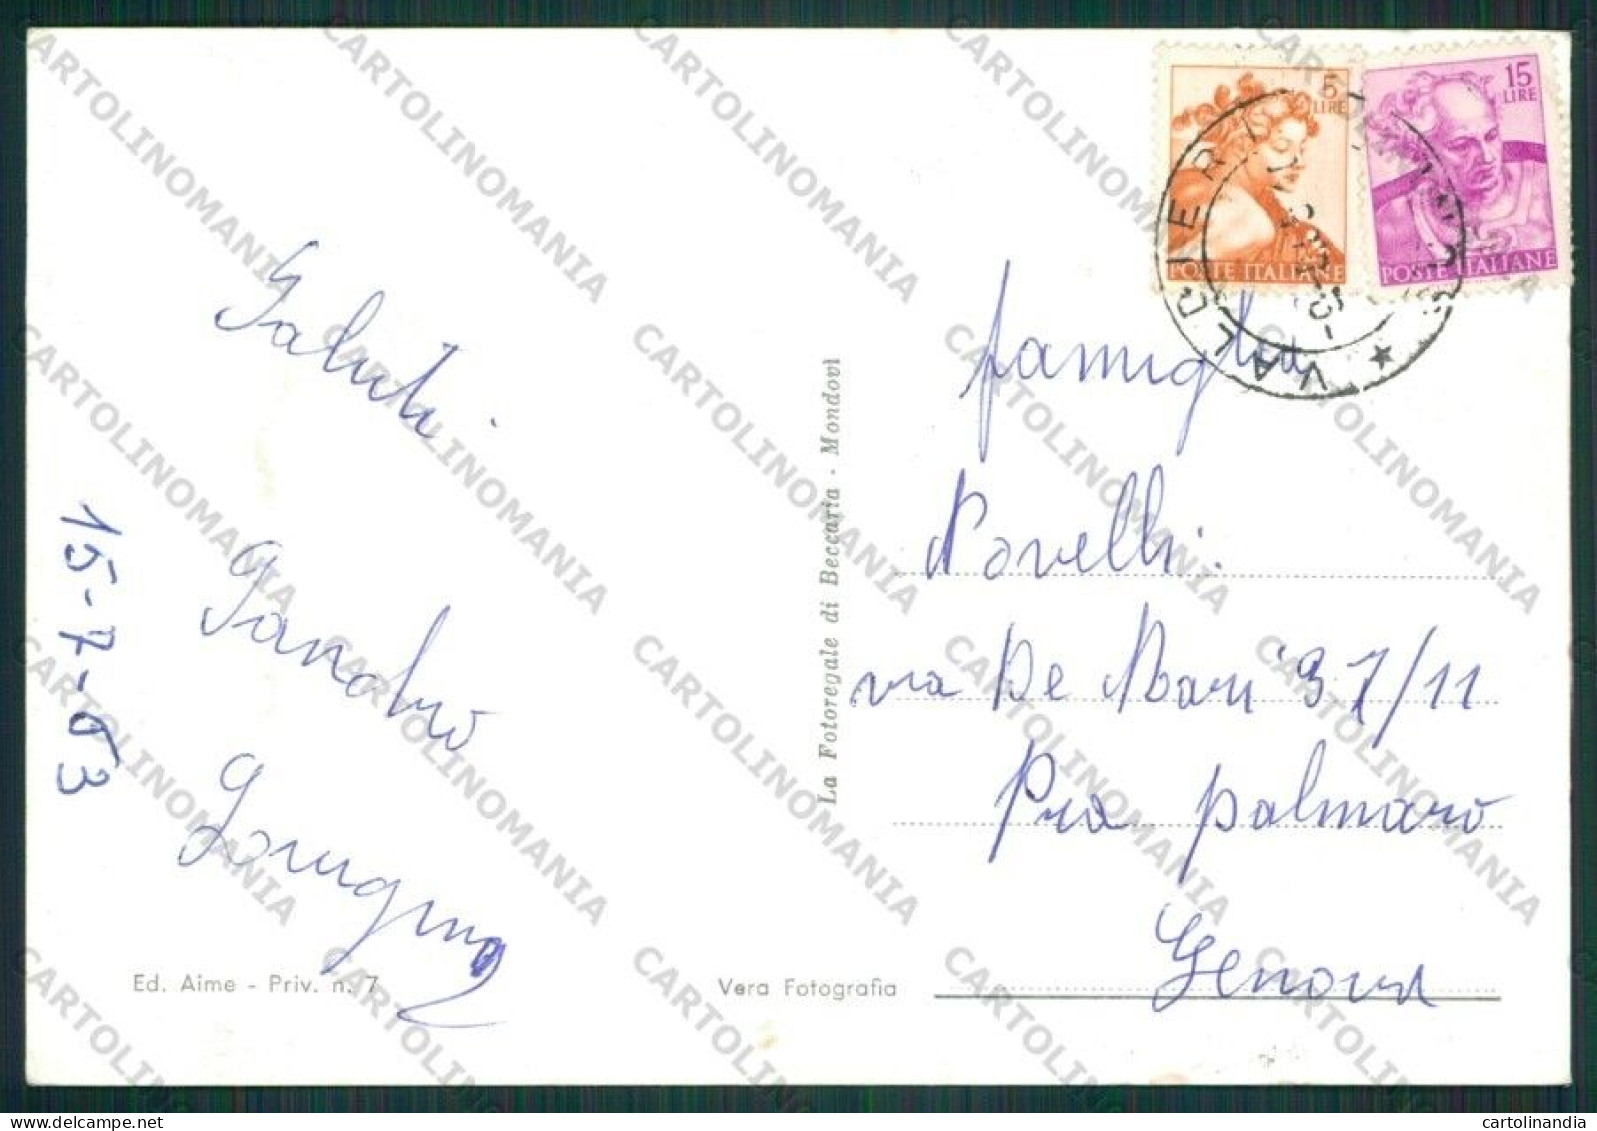 Saluti.
Sandro
15-7-63
Ed. Aime - Priv. n. 7
Vera Fotografia
La Fotoregale di Beccaria - Mondovì
5
LIRE
POSTE ITALIANE
15
LIRE
POSTE ITALIANE
VALDIERI
famiglia
Novelli:
via De Mari 37/11
Pra palmaro
Genova
CARTOLINOMANIA
cartolinandia